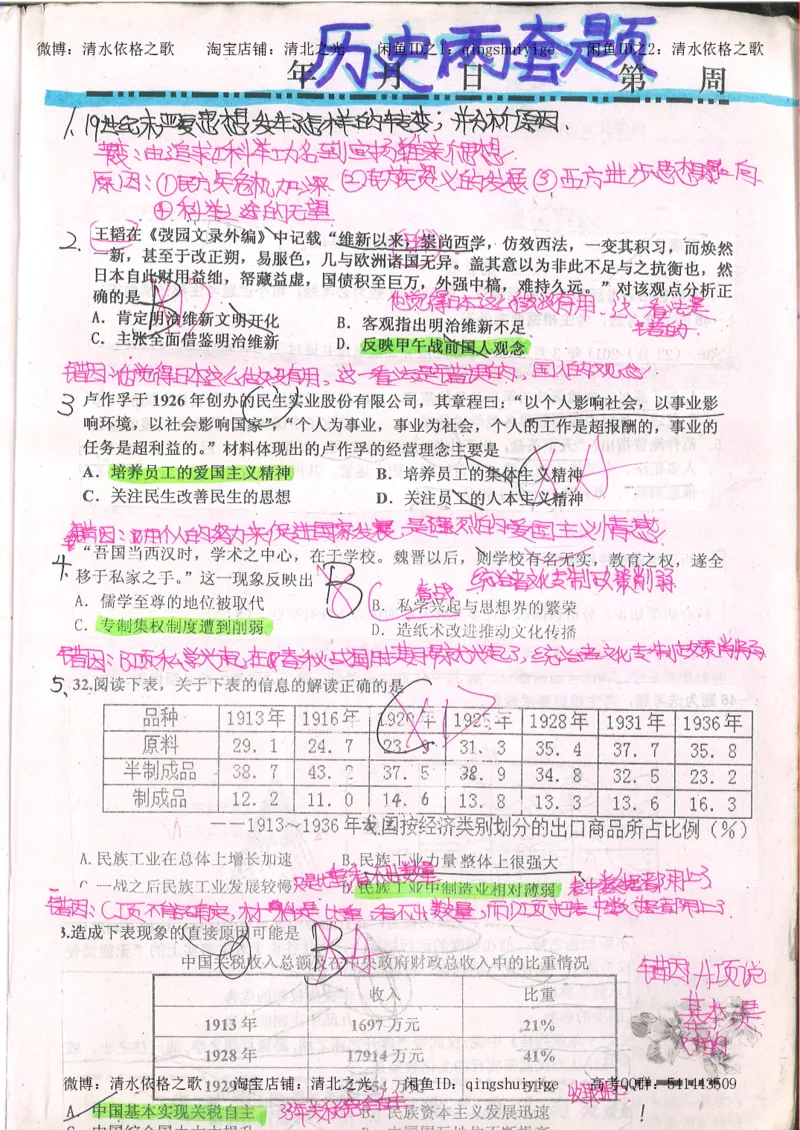 微博：清水依格之歌 淘宝店铺：清北之光 闲鱼ID之1：qingshuiyige 闲鱼ID之2：清水依格之歌
历史两套题
年 月 日 第 周
1.19世纪末严复思想发生了怎样的转变；并分析原因.
转变：由追求科举功名到宣扬维新思想.
原因：①民族危机加深 ②民族资本主义的发展 ③西方进步思想影响
④科举之途的无望
2. 王韬在《弢园文录外编》中记载“维新以来，崇尚西学，仿效西法，一变其积习，而焕然
一新，甚至于改正朔，易服色，几与欧洲诸国无异。盖其意以为非此不足与之抗衡也，然
日本自此财用益绌，帑藏益虚，国债积至巨万，外强中槁，难持久远。”对该观点分析正
确的是 B
他觉得日本这么做没有用.这一看法是错误的
A．肯定明治维新文明开化 B．客观指出明治维新不足
C．主张全面借鉴明治维新 D．反映甲午战前国人观念
错因：他觉得日本这么做没有用，这一看法是错误的，国人的观念.
3 卢作孚于 1926 年创办的民生实业股份有限公司，其章程曰：“以个人影响社会，以事业影
响环境，以社会影响国家”，“个人为事业，事业为社会，个人的工作是超报酬的，事业的
任务是超利益的。”材料体现出的卢作孚的经营理念主要是
A．培养员工的爱国主义精神 B．培养员工的集体主义精神
C．关注民生改善民生的思想 D．关注员工的人本主义精神
错因：以用个人的努力来促进国家发展，是强烈的爱国主义情感.
4. “吾国当西汉时，学术之中心，在于学校。魏晋以后，则学校有名无实，教育之权，遂全
移于私家之手。”这一现象反映出 B C
春战 统治者文化专制政策削弱
A．儒学至尊的地位被取代 B．私学兴起与思想界的繁荣
C．专制集权制度遭到削弱 D．造纸术改进推动文化传播
错因：B项私学兴起在春秋战国时期就兴起了，统治者文化专制政策削弱
5、32.阅读下表，关于下表的信息的解读正确的是 C D
品种 1913年 1916年 1920年 1925年 1928年 1931年 1936年
原料 29.1 24.7 23.9 31.3 35.4 37.7 35.8
半制成品 38.7 43.2 37.5 38.9 34.8 32.5 23.2
制成品 12.2 11.0 14.6 13.8 13.3 13.6 16.3
——1913～1936年我国按经济类别划分的出口商品所占比例（%）
A.民族工业在总体上增长加速 B.民族工业力量整体上很强大
C 一战之后民族工业发展较慢 D.民族工业中制造业相对薄弱 表中数据都用上了
错因：C项不能确定，材料体现是比重，看不出数量，而D项把表中数据都用上了.
3.造成下表现象的直接原因可能是 B A
中国关税收入总额及在中央政府财政总收入中的比重情况
收入 比重
1913年 1697万元 21%
1928年 17914万元 41%
1929年
错因：A项说基本是对的
微博：清水依格之歌 淘宝店铺：清北之光 闲鱼ID：qingshuiyige 高考QQ群：541443509
A．中国基本实现关税自主 B．民族资本主义发展迅速